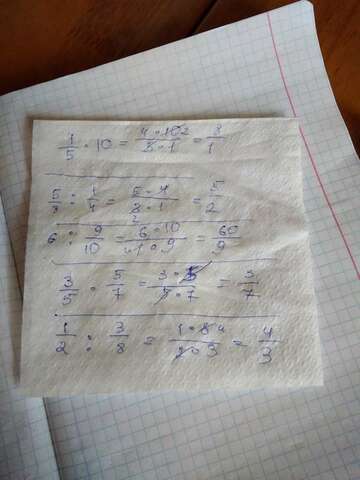 1/5 · 10 = 4 · 10 2 / 5 · 1 = 8/1
5/8 : 1/4 = 5 · 4 / 8 · 1 = 5/2
6 : 9/10 = 6 · 10 / 1 · 9 = 60/9
3/5 · 5/7 = 3 · 5 / 5 · 7 = 3/7
1/2 : 3/8 = 1 · 8 4 / 2 · 3 = 4/3